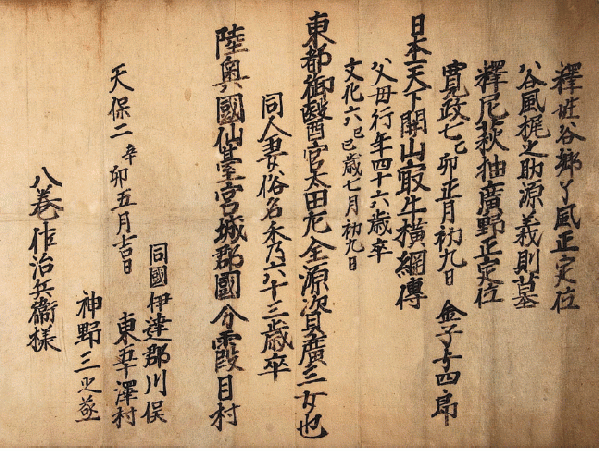 釋姓谷郷了風正定位
谷風梶之助源義則墓
釋尼萩抽廣野正定位
寛政七乙卯正月初九日 金子与四郎
日本天下開山最牛横綱傳
父母行年四十六歳卒
文化六己巳歳七月初九日
東都御醫官太田元全源資廣三女也
同人妻俗名永乃六十三歳卒
陸奥國仙臺宮城郡國分霞目村
同國伊達郡川俣
東五十澤村
天保二辛卯五月吉日
神野三之丞
八巻作治兵衛様